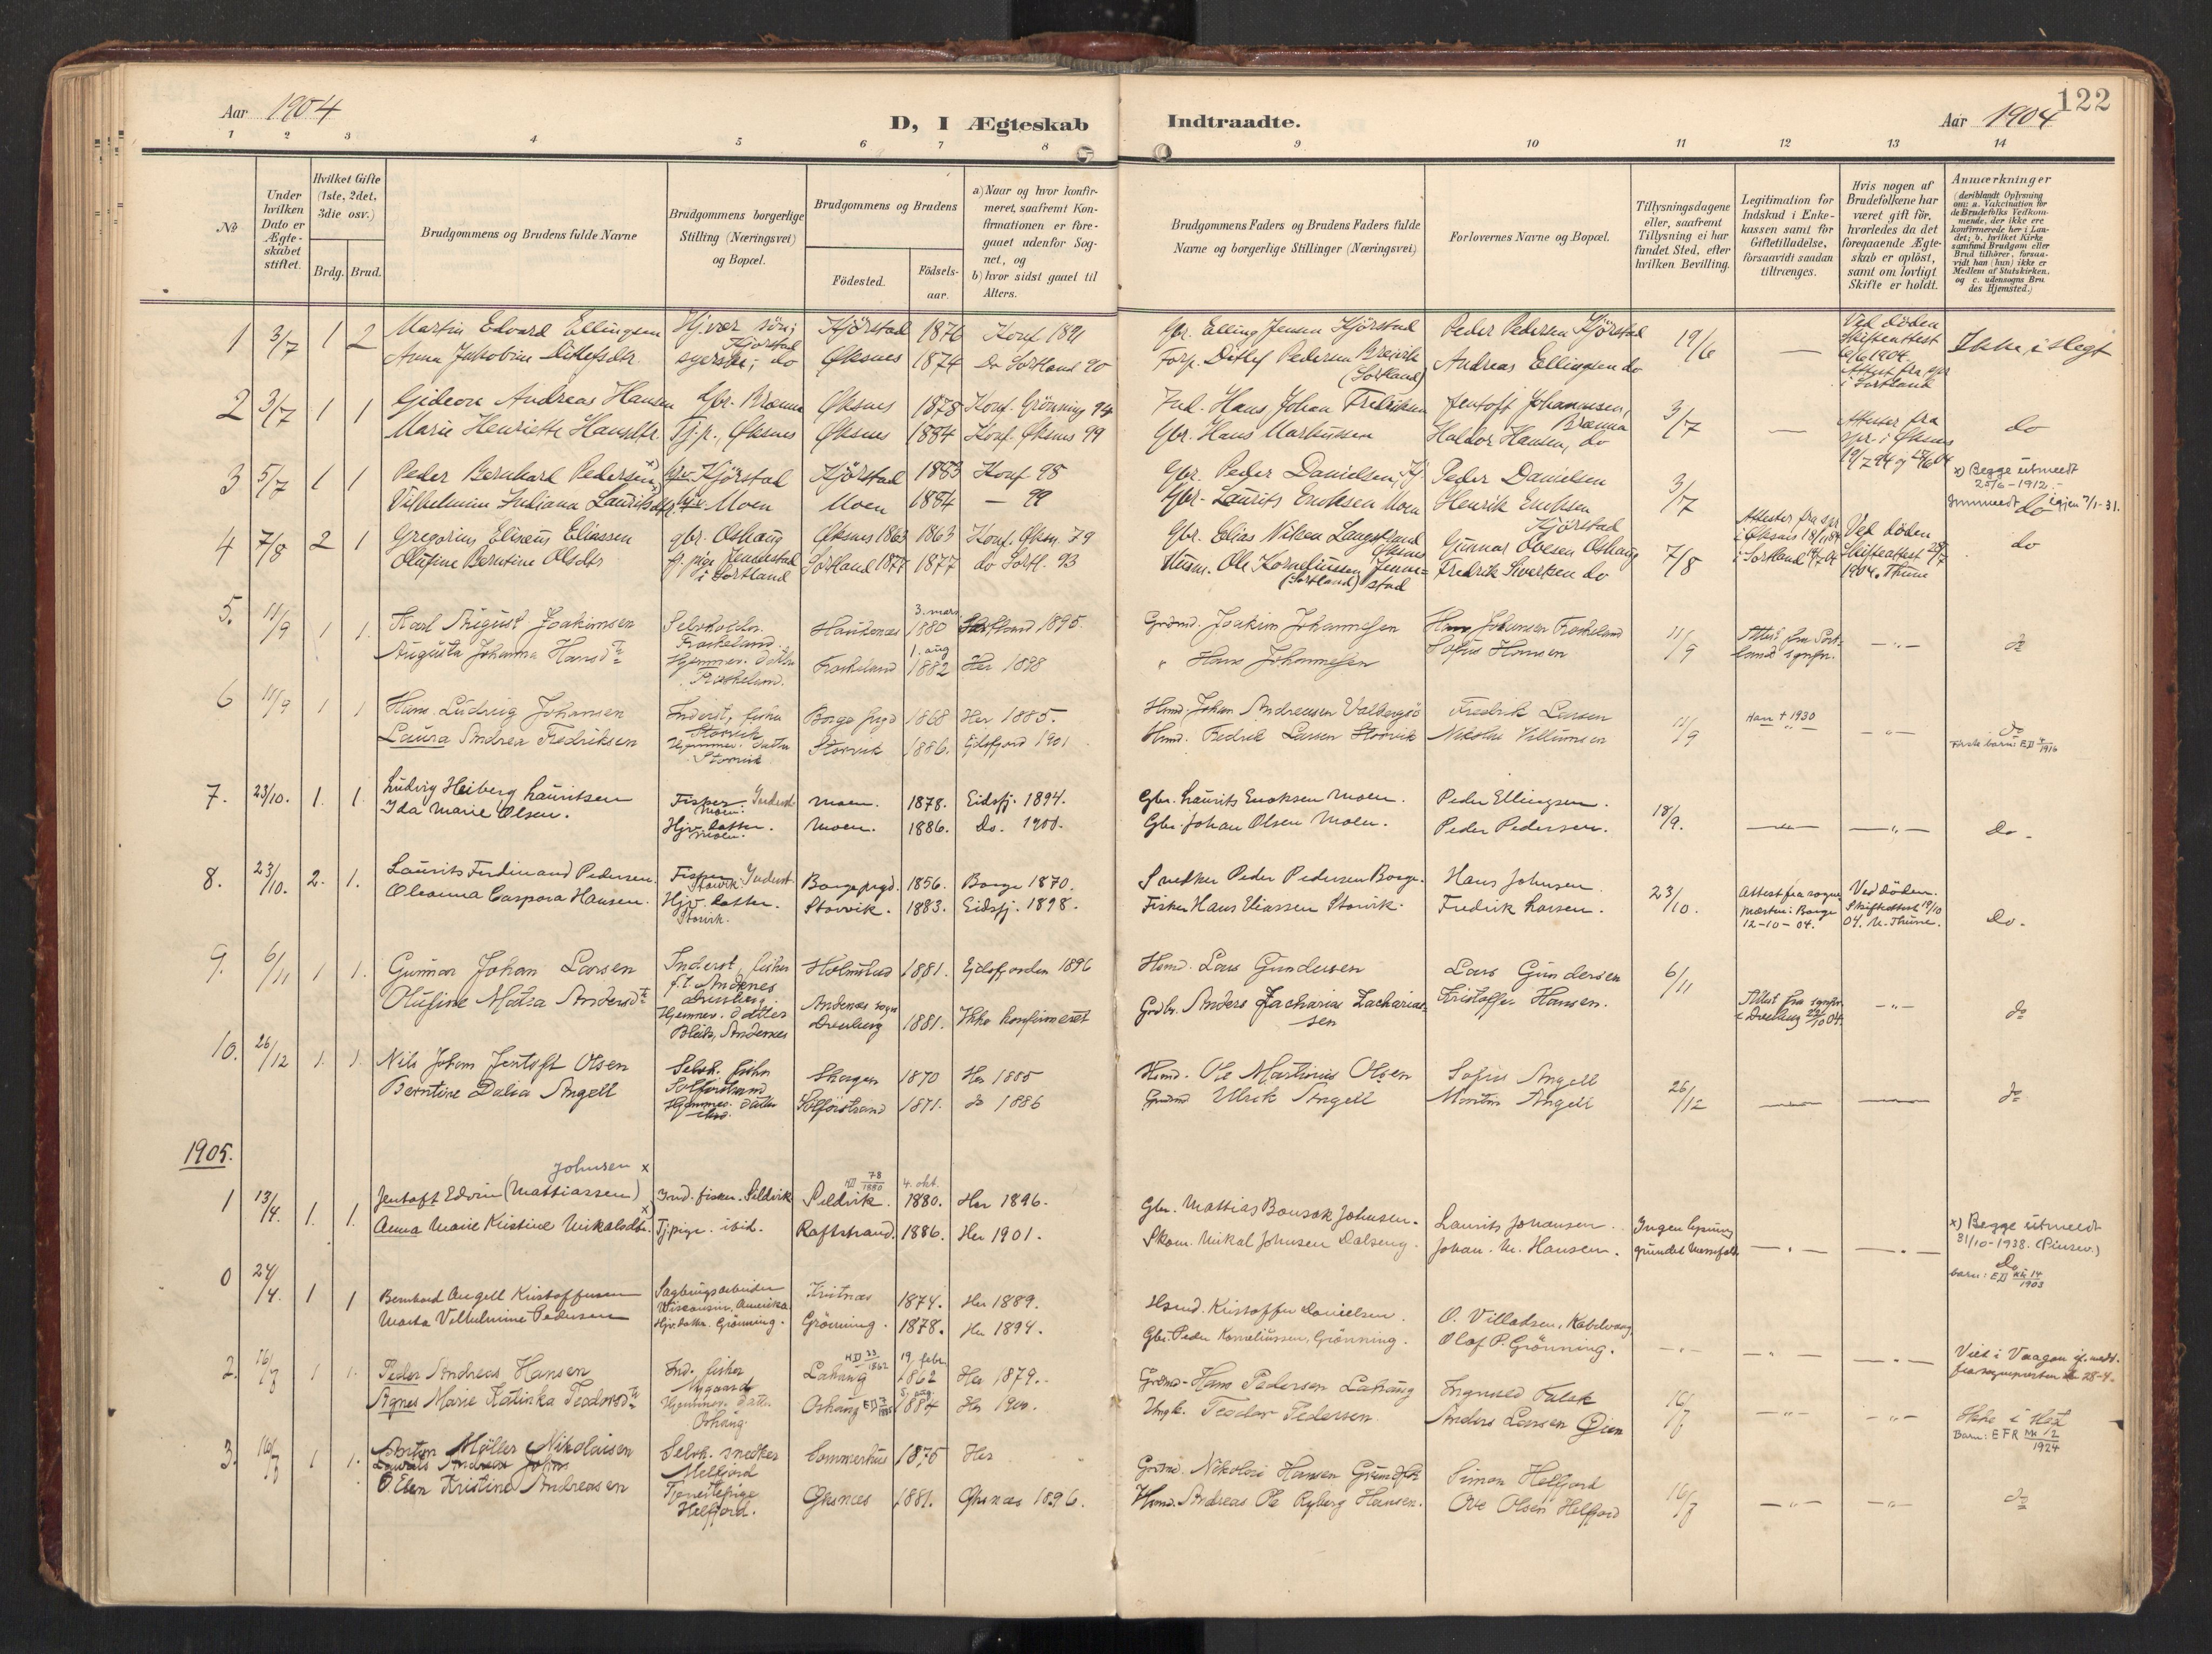 122
Aar 1904
D, I Ægteskab Indtraadte.
Aar 1904
1 2 3 4 5 6 7 8 9 10 11 12 13 14
No
Under hvilken Dato er Ægteskabet stiftet.
Hvilket Gifte (1ste, 2det, 3die osv.)
Brdg. Brud.
Brudgommens og Brudens fulde Navne
Brudgommens borgerlige Stilling (Næringsvei) og Bopæl.
Brudgommens og Brudens
Födested.
Födselsaar.
a) Naar og hvor konfirmeret, saafremt Konfirmationen er foregaaet udenfor Sognet, og
b) hvor sidst gaaet til Alters.
Brudgommens Faders og Brudens Faders fulde Navne og borgerlige Stillinger (Næringsvei)
Forlovernes Navne og Bopæl.
Tillysningsdagene eller, saafremt Tillysning ei har fundet Sted, efter hvilken Bevilling.
Legitimation for Indskud i Enkekassen samt for Giftetilladelse, forsaavidt saadan tiltrænges.
Hvis nogen af Brudefolkene har været gift för, hvorledes da det foregaaende Ægteskab er oplöst, samt om lovligt Skifte er holdt.
Anmærkninger
(deriblandt Oplysning om: a. Vakcination for de Brudefolks Vedkommende, der ikke ere konfirmerede her i Landet; b. hvilket Kirkesamfund Brudgom eller Brud tilhörer, forsaavidt han (hun) ikke er Medlem af Statskirken, og c. udensogns Brudes Hjemsted.)
1 3/7 1 2 Martin Edvard Ellingsen Hj.vær. sön; Kjörstad Kjörstad 1876 Konf 1891 Gbr. Elling Jensen Kjörstad Peder Pedersen Kjörstad 19/6 — Ved döden Skifteattest 6/6 1904. Attest fra spr i Sortland Ikke i slegt
Anna Jakobine Ditlefsdtr syerske; do Øksnes 1874 Do Sortland 90 Forp. Ditlef Pedersen Breivik (Sortland) Andreas Ellingsen do
2 3/7 1 1 Gideon Andreas Hansen Gbr. Brænna Øksnes 1878 Konf. Grönning 94 Ind. Hans Johan Fredriksen Jentoft Johannesen, Brænna 3/7 — Attester fra spr. i Øksnes do
Marie Henriette Hansdtr. Tj.p., Øksnes Øksnes 1884 Konf. Øksnes 99 Gbr. Hans Markussen Haldor Hansen, do
3 5/7 1 1 Peder Bernhard Pedersen x) Kjörstad Kjörstad 1883 Konf 98 Gbr. Peder Danielsen, Kj. Peder Danielsen 3/7 x) Begge utmeldt 25/6-1912.-
Vilhelmine Juliana Lauritsdtr. Moen Moen 1884 — 99 Gbr. Laurits Enoksen Moen Henrik Enoksen Kjörstad Innmeldt igjen 7/1-31. do
4 7/8 2 1 Gregorius Eliseus Eliassen gbr. Oshaug Øksnes 1863 1863 Konf. Øksn. 79 Gbr. Elias Nilsen Langstrand Øksnes Gunnar Ovesen Oshaug 7/8 Attester fra spr. i Øksnes i Sortland Ved döden Skifteattest 1904. Thune do
Olufine Berntine Olsdtr tj. pige Jennestad i Sortland Sortland 1877 1877 do Sortl. 93 Husm. Ole Korneliussen Jennestad (Sortland) Fredrik Siversen do
5. 11/9 1 1. Karl August Joakimsen Selvholdn. Frøskeland. 3. mars 1880 Sortland 1895. Grdmd. Joakim Johannesen Hans Johansen Froskeland 11/9 Attest fra Sortland sgnpr. —"— do
Augusta Johanna Hansdtr Hjemmev. datter Froskeland. Froskeland 1. aug 1882 Her 1898 " Hans Johannesen Sofus Hansen
6 11/9 1 1 Hans Ludvig Johansen Inderst, fisker Storvik Borge 1868 Her 1885. Hmd. Johan Andreassen Valbergsö Fredrik Larsen 11/9 Han † 1930 —"— do
Laura Andrea Fredriksen Hjemmev. datter Storvik Storvik 1886. Eidsfjord 1901 Hmd. Fredrik Larsen Storvik Nikolai Villumsen Første barn: ED 4/1916
7. 23/10. 1. 1. Ludvig Heiberg Lauritsen Fisker Inderst Moen. Moen. 1878. Eidsfj. 1894. Gbr. Laurits Enoksen Moen. Peder Ellingsen. 18/9. — —"— Do.
Ida Marie Olsen. Hjv. datter. Moen. Moen. 1886. Do. 1900. Gbr. Johan Olsen Moen. Peder Pedersen.
8. 23/10. 2. 1. Laurits Ferdinand Pedersen. Fisker Inderst Storvik. Borge prgd. 1856. Borge 1870. Snedker Peder Pedersen Borge. Hans Johnsen. 23/10. Attest fra sognepræsten i Borge 12-10-04. Ved döden. Skifteattest 19/10 04. M. Thune. Do.
Oleanna Caspara Hansen. Hjv. datter. Storvik. Storvik. 1883. Eidsfj. 1898. Fisker Hans Eliassen Storvik. Fredrik Larsen.
9. 6/11 1 1. Gunnar Johan Larsen Inderst, fisker f.t. Andenes Dverberg. Holmstad 1881. Eidsfjorden 1896 Hmd. Lars Gundersen Lars Gundersen 6/11 Attest fra sgnpr. i Dverberg 04. —"— do
Olufine Matea Andersdtr Hjemmev. datter Bleik, Andenes Andenes sogn Dverberg 1881. Ikke konfirmeret Grdbr. Anders Zacharias Zachariassen Kristoffer Hansen.
10. 26/12 1. 1. Nils Johan Jentoft Olsen Selvh. fisker Solfjorstrand Skogen 1870 Her 1885 Hmd. Ole Martinus Olsen Sofus Angell 26/12 — — do
Berntine Dalia Angell Hjemmev. datter ibid. Solfjorstrand 1871. do 1886 Grdmd Ulrik Angell Martin Angell
1905.
Johnsen x
1 13/4. 1. 1. Jentoft Edvin (Mattiassen) Ind. fisker. Sildvik HD 78/1880 Sildvik. 4. okt. 1880. Her 1896. Gbr. Mattias Bonsak Johnsen. Laurits Johansen. Ingen lysning grundet —"— —"— x) Begge utmeldt 31/10-1938. (Pinsev.) Do
Anna Marie Kristine Mikalsdtr. x) Tj.pige. ibid. Raftstrand. 1886. Her 1901. Skom. Mikal Johnsen Dalseng. Johan. M. Hansen. barn: ED 14/1903
0 24/4. 1 1 Bernhard Angell Kristoffersen Sagbrugsarbeider Wisconsin, Amerika Kritnæs 1874. Her 1889. Hsmd. Kristoffer Danielsen. O. Villadsen, Kabelvaag —"— —"— —"— Viet i Vaagan if. medd. fra sognepresten 28-4.
Marta Vilhelmine Pedersen Hjv. datter. Grönning. Grönning. 1878. Her 1894. Gbr. Peder Korneliussen, Grönning. Olaf P. Grönning.
2. 16/7 1 1. Peder Andreas Hansen Ind. fisker Nygaard HD 23/1862 Lahaug 19. febr 1862 Her 1879. Grdmd. Hans Pedersen Lahaug Ingvald Falak 16/7 —"— —"— Ikke i slegt
Agnes Marie Katinka Teodorsdtr Hjemmev. datter Oshaug Oshaug 5. aug. 1884 Her 1900. Ungk. Teodor Pedersen Anders Larsen Øien Barn: EFR Nr 12/1924
3. 16/7 1 1. Anton Møller Nikolaisen Selvh. snedker Melfjord Sommerhus 1875 Her Grdmd. Nikolai Hansen Simon Helfjord 16/7 —"— —"— do
Elen Kristine Andreasen Tjenestepige Helfjord. Øksnes 1881. Øksnes 1896. Hsmd. Andreas Ole Ryberg Hansen. Ove Olsen Helfjord